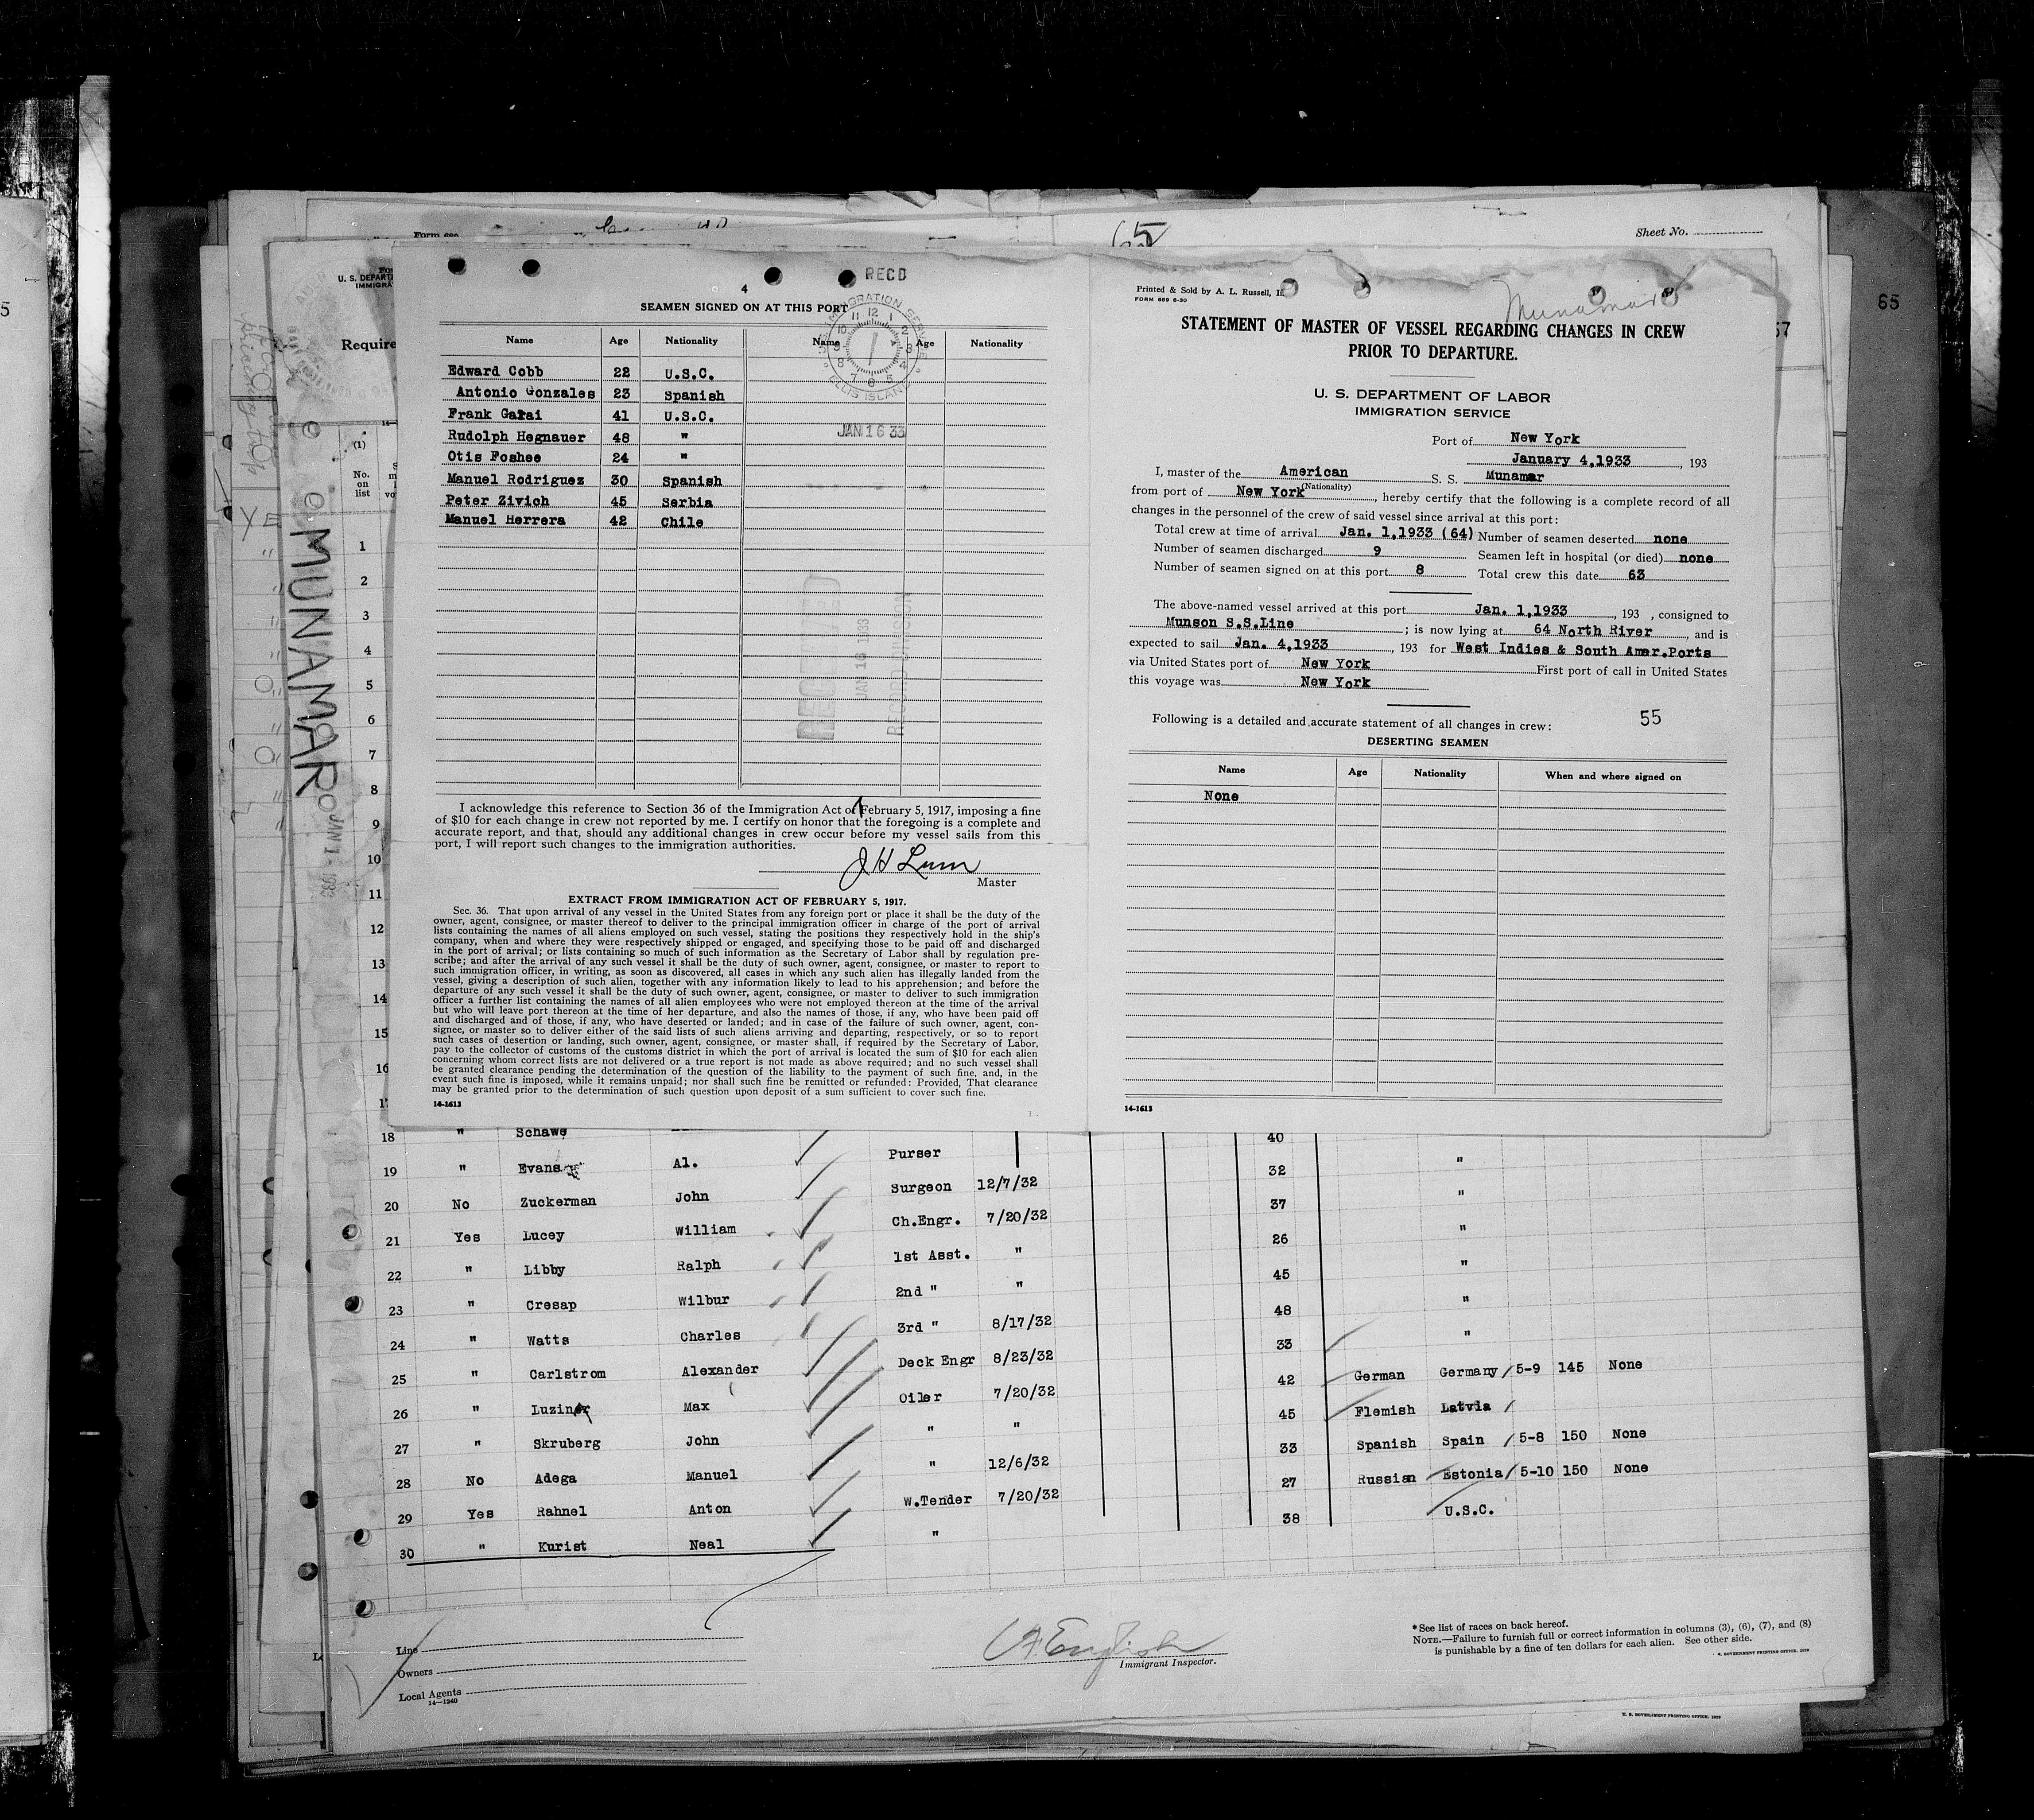 65
Sheet No.
RECD
4
SEAMEN SIGNED ON AT THIS PORT
Name Age Nationality Name Age Nationality
Edward Cobb 22 U.S.C.
Antonio Gonzales 23 Spanish
Frank Garai 41 U.S.C.
Rudolph Hegnauer 48 "
Otis Foshee 24 "
Manuel Rodriguez 30 Spanish
Peter Zivich 45 Serbia
Manuel Herrera 42 Chile
IMMIGRATION SERVICE
ELLIS ISLAND
JAN 16 33
JAN 16 1933
RECORD DIVISION
I acknowledge this reference to Section 36 of the Immigration Act of February 5, 1917, imposing a fine
of $10 for each change in crew not reported by me. I certify on honor that the foregoing is a complete and
accurate report, and that, should any additional changes in crew occur before my vessel sails from this
port, I will report such changes to the immigration authorities.
J H Lum
Master
EXTRACT FROM IMMIGRATION ACT OF FEBRUARY 5, 1917.
Sec. 36. That upon arrival of any vessel in the United States from any foreign port or place it shall be the duty of the
owner, agent, consignee, or master thereof to deliver to the principal immigration officer in charge of the port of arrival
lists containing the names of all aliens employed on such vessel, stating the positions they respectively hold in the ship's
company, when and where they were respectively shipped or engaged, and specifying those to be paid off and discharged
in the port of arrival; or lists containing so much of such information as the Secretary of Labor shall by regulation pre-
scribe; and after the arrival of any such vessel it shall be the duty of such owner, agent, consignee, or master to report to
such immigration officer, in writing, as soon as discovered, all cases in which any such alien has illegally landed from the
vessel, giving a description of such alien, together with any information likely to lead to his apprehension; and before the
departure of any such vessel it shall be the duty of such owner, agent, consignee, or master to deliver to such immigration
officer a further list containing the names of all alien employees who were not employed thereon at the time of the arrival
but who will leave port thereon at the time of her departure, and also the names of those, if any, who have been paid off
and discharged and of those, if any, who have deserted or landed; and in case of the failure of such owner, agent, con-
signee, or master so to deliver either of the said lists of such aliens arriving and departing, respectively, or so to report
such cases of desertion or landing, such owner, agent, consignee, or master shall, if required by the Secretary of Labor,
pay to the collector of customs of the customs district in which the port of arrival is located the sum of $10 for each alien
concerning whom correct lists are not delivered or a true report is not made as above required; and no such vessel shall
be granted clearance pending the determination of the question of the liability to the payment of such fine, and, in the
event such fine is imposed, while it remains unpaid; nor shall such fine be remitted or refunded: Provided, That clearance
may be granted prior to the determination of such question upon deposit of a sum sufficient to cover such fine.
14-1613
Printed & Sold by A. L. Russell,
FORM 689 6-30
Munamar
STATEMENT OF MASTER OF VESSEL REGARDING CHANGES IN CREW
PRIOR TO DEPARTURE.
U. S. DEPARTMENT OF LABOR
IMMIGRATION SERVICE
Port of New York
January 4,1933, 193
I, master of the American S. S. Munamar
(Nationality)
from port of New York, hereby certify that the following is a complete record of all
changes in the personnel of the crew of said vessel since arrival at this port:
Total crew at time of arrival Jan. 1,1933 (64) Number of seamen deserted none
Number of seamen discharged 9 Seamen left in hospital (or died) none
Number of seamen signed on at this port 8 Total crew this date 63
The above-named vessel arrived at this port Jan. 1,1933, 193 , consigned to
Munson S.S.Line ; is now lying at 64 North River, and is
expected to sail Jan. 4,1933, 193 for West Indies & South Amer.Ports
via United States port of New York First port of call in United States
this voyage was New York
Following is a detailed and accurate statement of all changes in crew:
55
DESERTING SEAMEN
Name Age Nationality When and where signed on
None
14-1613
65
57
Require
(1)
No.
on
list
MUNAMAR
JAN 1- 1933
1
2
3
4
5
6
7
8
9
10
11
12
13
14
15
16
17
18 " Schawe 40
19 " Evans Al. Purser 32 "
20 No Zuckerman John Surgeon 12/7/32 37 "
21 Yes Lucey William Ch.Engr. 7/20/32 26 "
22 " Libby Ralph 1st Asst. " 45 "
23 " Cresap Wilbur 2nd " " 48 "
24 " Watts Charles 3rd " 8/17/32 33 "
25 " Carlstrom Alexander Deck Engr 8/23/32 42 German Germany 5-9 145 None
26 " Luziner Max Oiler 7/20/32 45 Flemish Latvia
27 " Skruberg John " " 33 Spanish Spain 5-8 150 None
28 No Adega Manuel " 12/6/32 27 Russian Estonia 5-10 150 None
29 Yes Rahnel Anton W.Tender 7/20/32 38 U.S.C.
30 " Kurist Neal "
Line
Owners
Local Agents
14-1240
English
Immigrant Inspector.
*See list of races on back hereof.
NOTE.—Failure to furnish full or correct information in columns (3), (6), (7), and (8)
is punishable by a fine of ten dollars for each alien. See other side.
U. S. GOVERNMENT PRINTING OFFICE. 1929